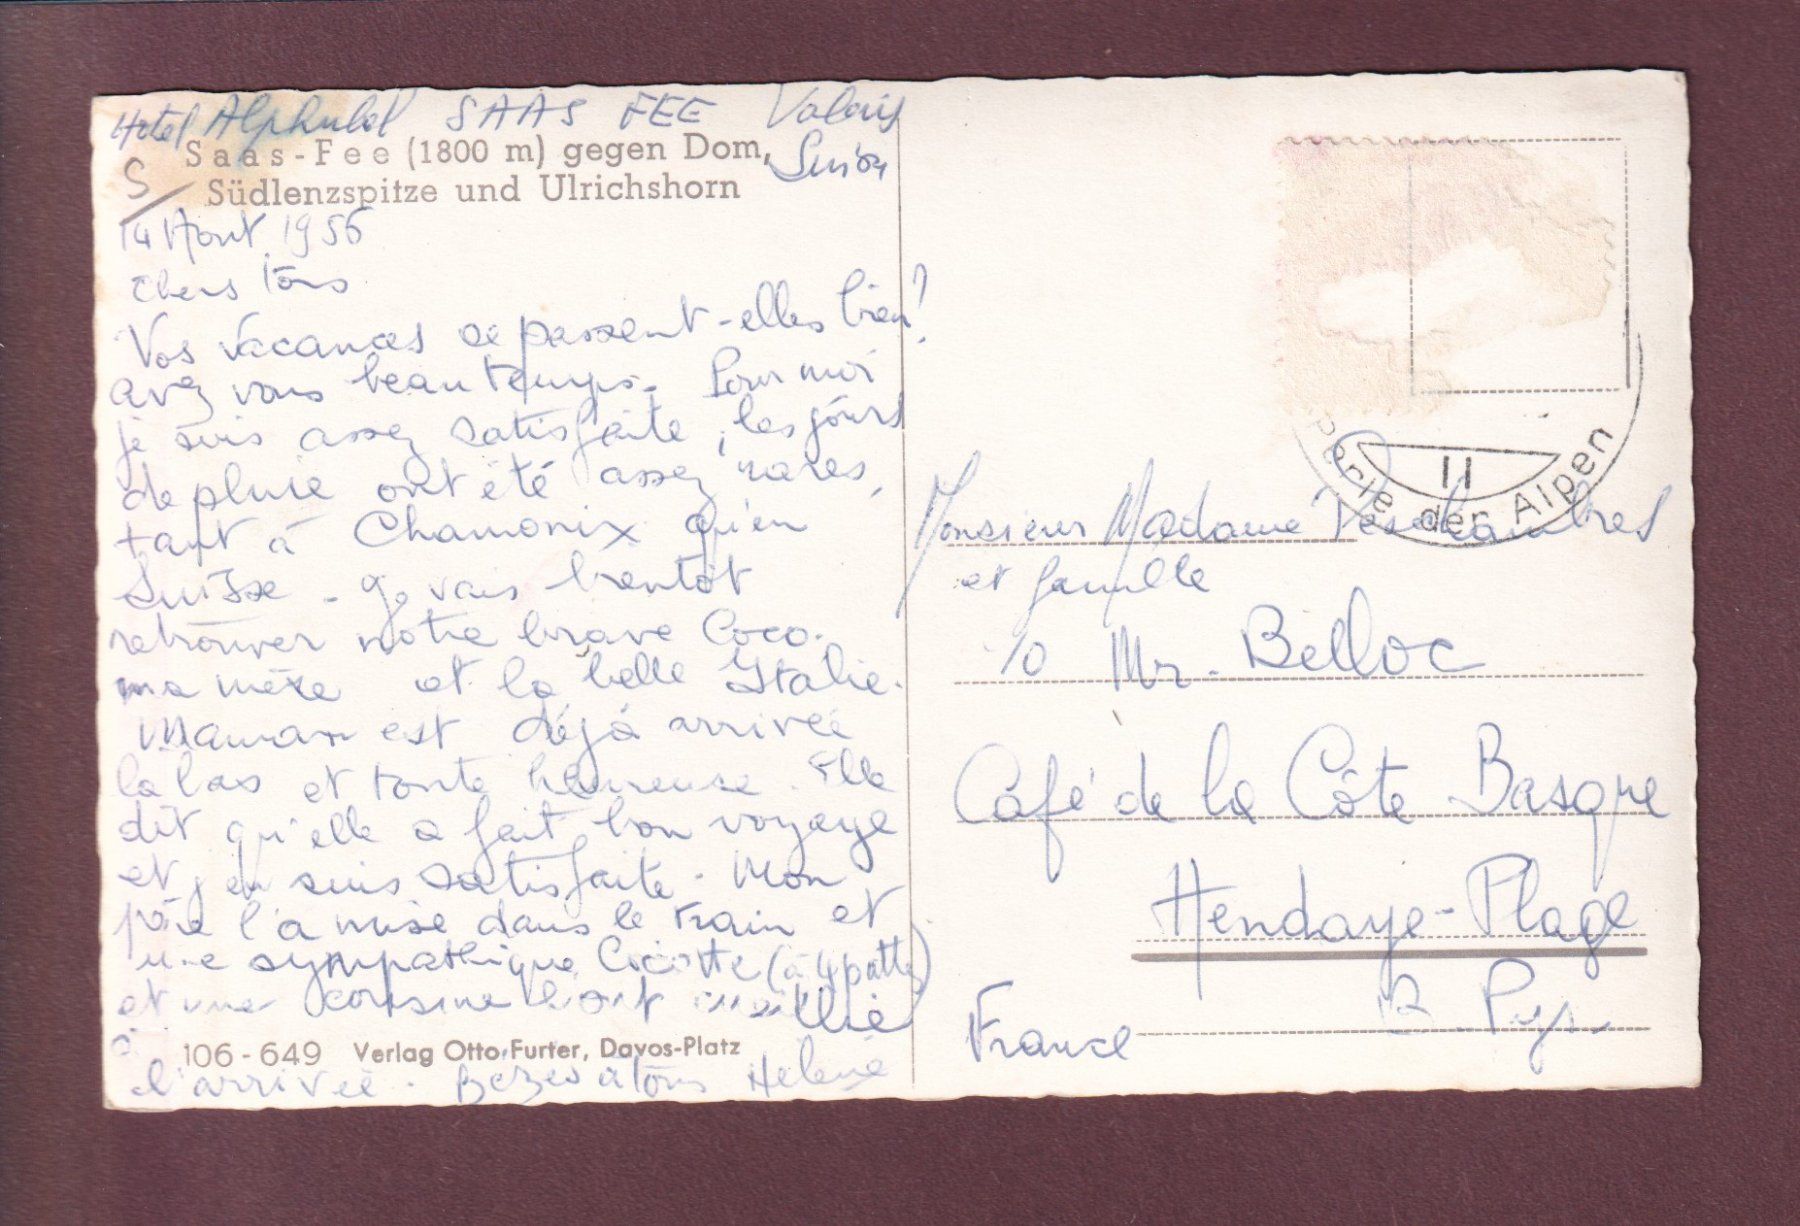 Hotel Alphubel SAAS FEE Valais
Suisse
Saas-Fee (1800 m) gegen Dom,
Südlenzspitze und Ulrichshorn
S/
14 Aout 1956
Chers tous
Vos vacances se passent-elles bien?
avez vous beau temps. Pour moi
je suis assez satisfaite, les jours
de pluie ont été assez rares,
tant à Chamonix qu'en
Suisse. Je vais bientôt
retrouver notre brave Coco.
ma mère et la belle Italie.
Maman est déjà arrivée
la bas et toute heureuse. Elle
dit qu'elle a fait bon voyage
et j'en suis satisfaite. Mon
père l'a mise dans le train et
une sympathique Cocotte (à 4 pattes)
et une cousine l'ont cueillie
à
106-649 Verlag Otto Furter, Davos-Platz
l'arrivée. Bezes à tous Helene
Perle der Alpen
II
Monsieur Madame
et famille
c/o Mr. Belloc
Café de la Côte Basque
Hendaye-Plage
B. Pyr.
France